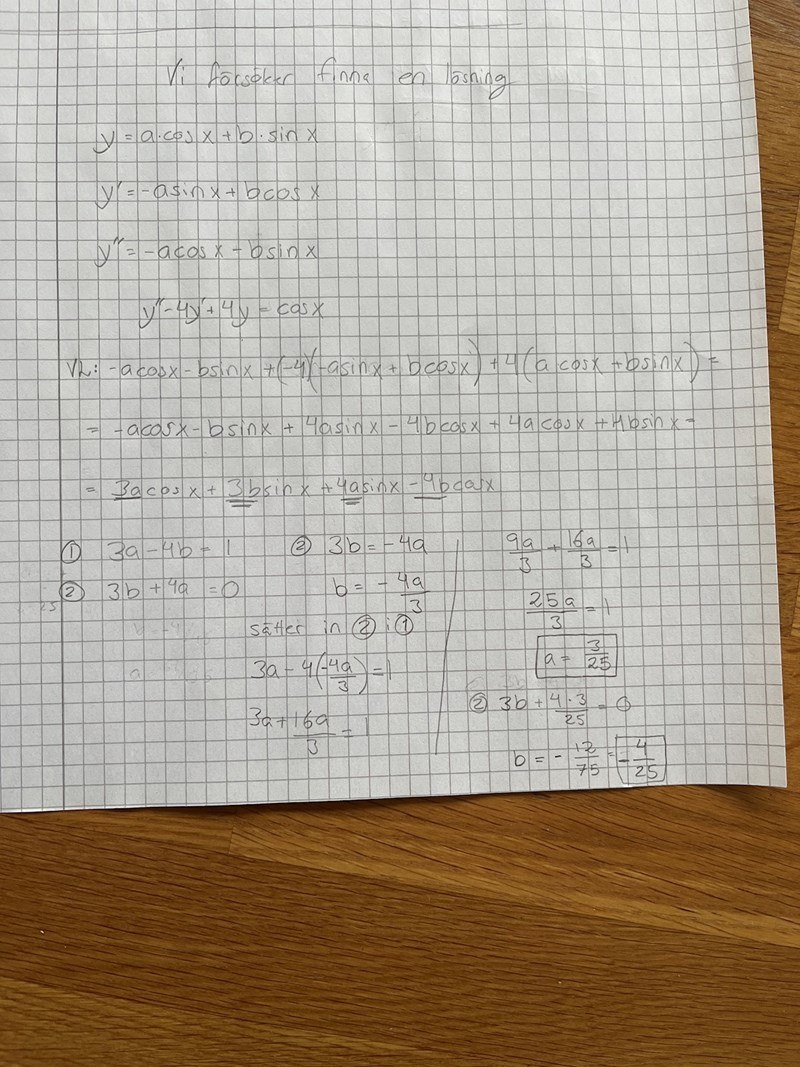 Vi försöker finna en lösning
y = a·cos x + b·sin x
y' = -asinx + bcosx
y'' = -acosx - bsinx
y'' - 4y' + 4y = cosx
VL: -acosx - bsinx + (-4)(-asinx + bcosx) + 4(acosx + bsinx) =
= -acosx - bsinx + 4asinx - 4bcosx + 4acosx + 4bsinx =
= 3acosx + 3bsinx + 4asinx - 4bcosx
① 3a - 4b = 1
② 3b + 4a = 0
② 3b = -4a
b = - 4a/3
sätter in ② i ①
3a - 4(-4a/3) = 1
3a + 16a/3 = 1
9a/3 + 16a/3 = 1
25a/3 = 1
a = 3/25
② 3b + 4·3/25 = 0
b = - 12/75 = - 4/25